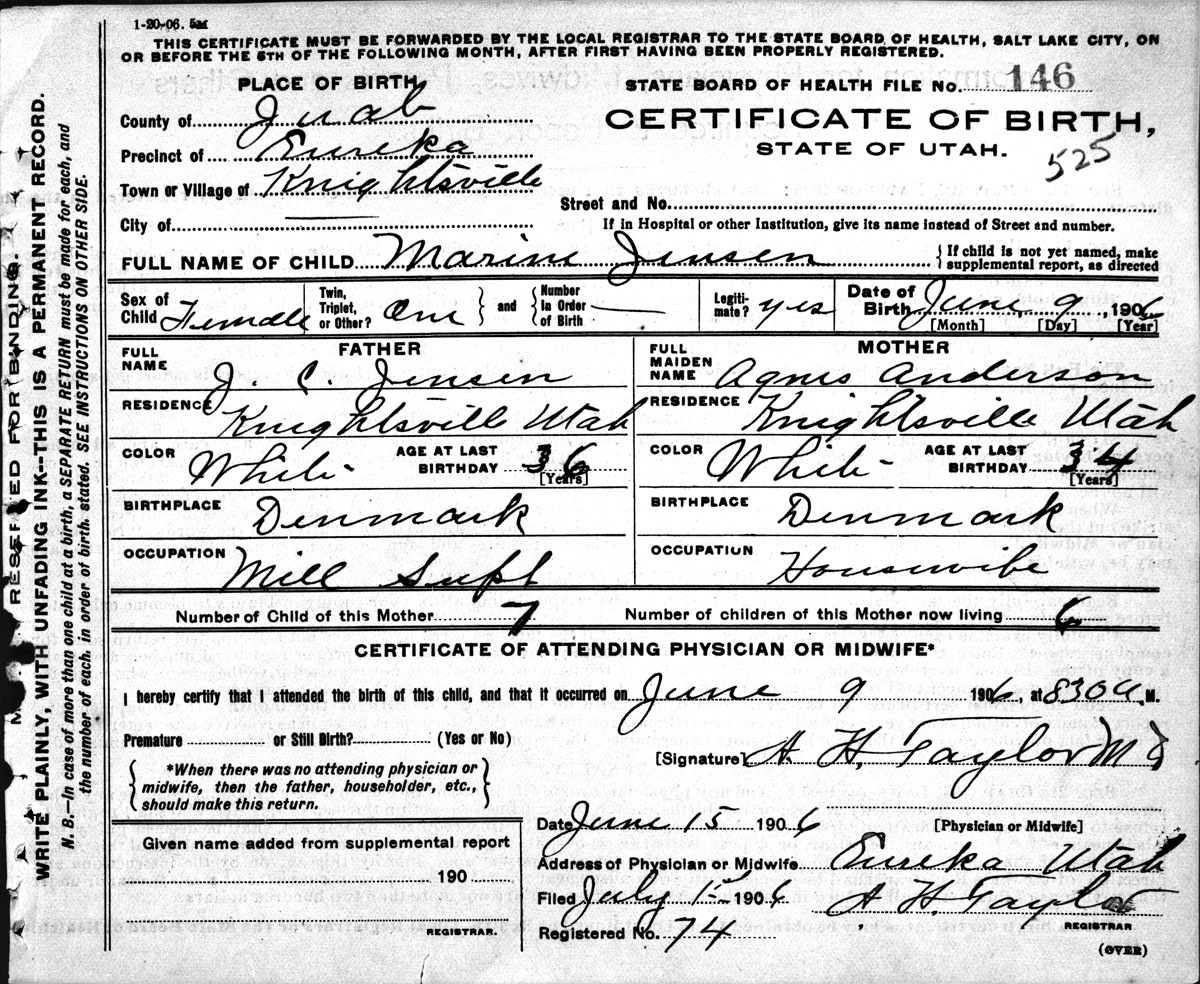 1-20-06. 5M
THIS CERTIFICATE MUST BE FORWARDED BY THE LOCAL REGISTRAR TO THE STATE BOARD OF HEALTH, SALT LAKE CITY, ON
OR BEFORE THE 5TH OF THE FOLLOWING MONTH, AFTER FIRST HAVING BEEN PROPERLY REGISTERED.
PLACE OF BIRTH
STATE BOARD OF HEALTH FILE No. 146
County of Juab
CERTIFICATE OF BIRTH,
STATE OF UTAH.
525
Precinct of Eureka
Town or Village of Knightsville
Street and No.
City of
If in Hospital or other Institution, give its name instead of Street and number.
FULL NAME OF CHILD Marine Jensen { If child is not yet named, make
supplemental report, as directed
Sex of Child Female
Twin, Triplet, or Other? One } and { Number In Order of Birth —
Legiti-mate? yes
Date of Birth June 9, 1906
[Month] [Day] [Year]
FATHER
FULL NAME J. C. Jensen
RESIDENCE Knightsville Utah
COLOR White AGE AT LAST BIRTHDAY 36 [Years]
BIRTHPLACE Denmark
OCCUPATION Mill Supt
MOTHER
FULL MAIDEN NAME Agnes Anderson
RESIDENCE Knightsville Utah
COLOR White AGE AT LAST BIRTHDAY 34 [Years]
BIRTHPLACE Denmark
OCCUPATION Housewife
Number of Child of this Mother 7 Number of children of this Mother now living 6
CERTIFICATE OF ATTENDING PHYSICIAN OR MIDWIFE*
I hereby certify that I attended the birth of this child, and that it occurred on June 9 1906, at 830 a M.
Premature or Still Birth? (Yes or No)
[Signature] A. H. Taylor M D
{ *When there was no attending physician or
midwife, then the father, householder, etc.,
should make this return. }
Date June 15 1906 [Physician or Midwife]
Given name added from supplemental report
190
REGISTRAR.
Address of Physician or Midwife Eureka Utah
Filed July 1st 1906 A H. Taylor
REGISTRAR
Registered No. 74
(OVER)
RESERVED FOR BINDING.
WRITE PLAINLY, WITH UNFADING INK--THIS IS A PERMANENT RECORD.
N. B.—In case of more than one child at a birth, a SEPARATE RETURN must be made for each, and
the number of each, in order of birth, stated. SEE INSTRUCTIONS ON OTHER SIDE.